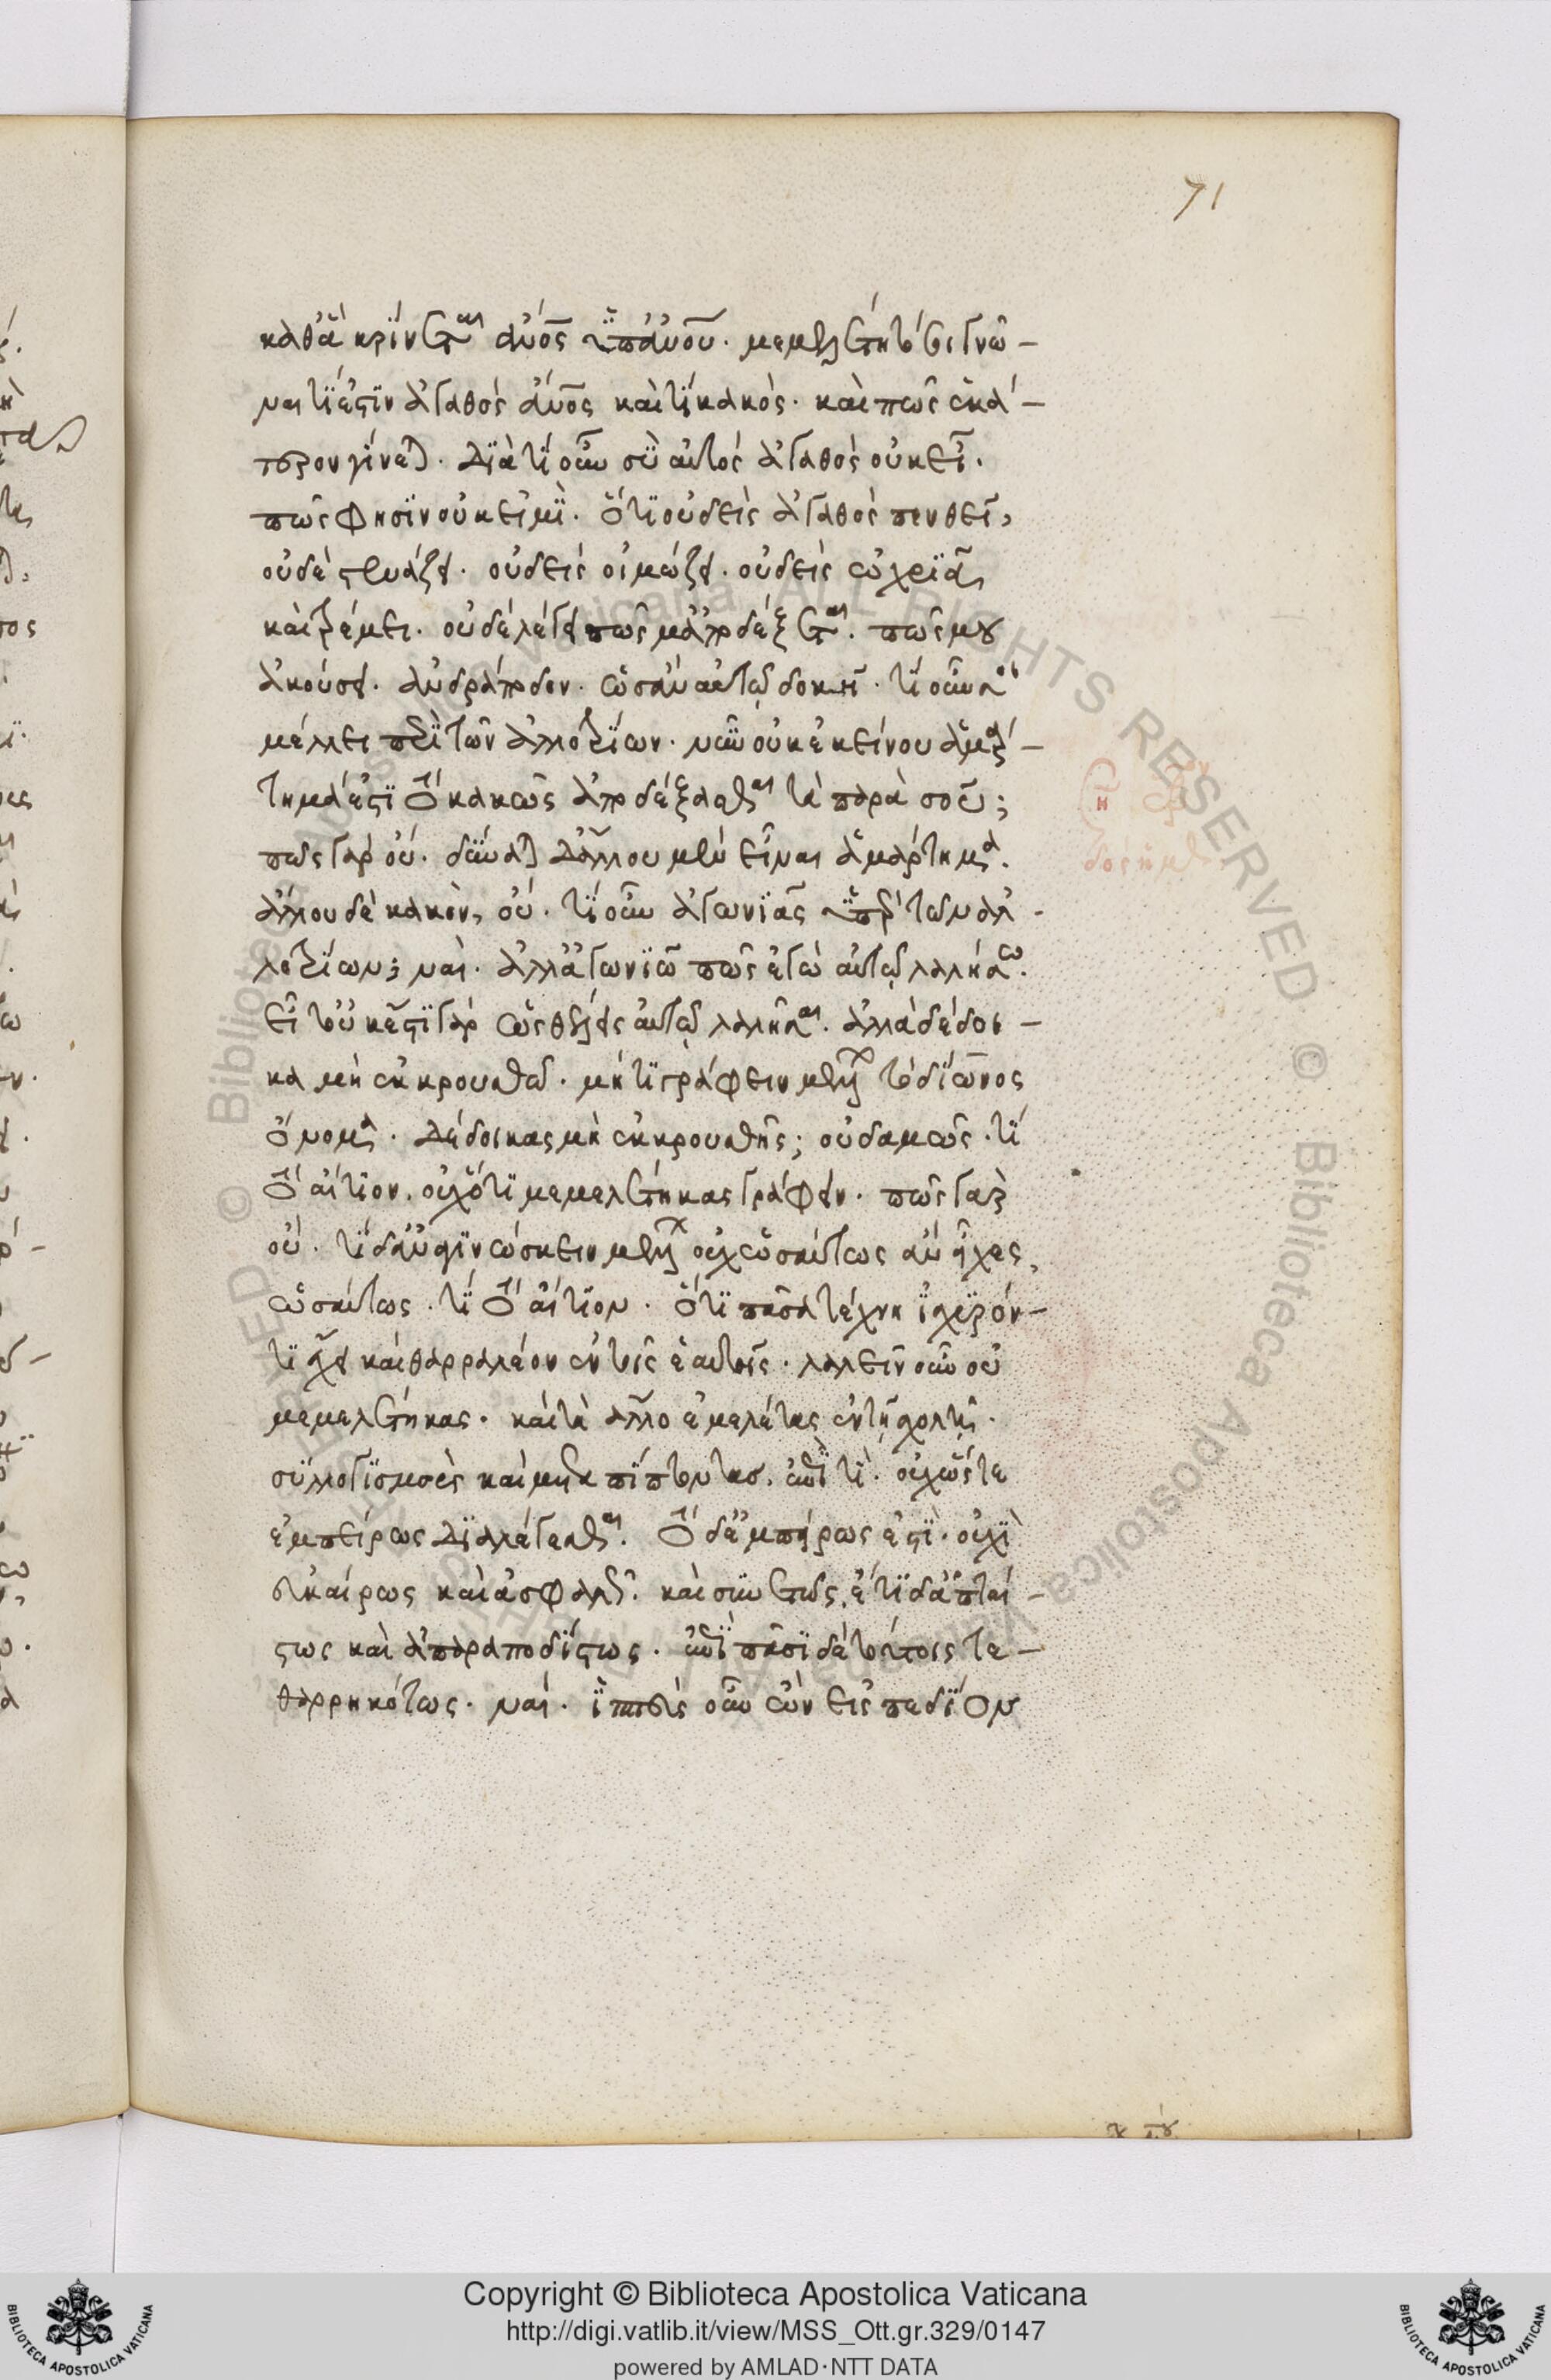 καθ' ἃ κρίνεται ἀν̅ος ὑπ' ἀν̅ου. μεμέληκέ τοι γνῶ-
ναι τί ἐστιν ἀγαθὸς ἄν̅ος καὶ τί κακὸς. καὶ πῶς ἑκά-
τερον γίνεται. διὰ τί οὖν σὺ αὐτὸς ἀγαθὸς οὐκ εἶ.
πῶς φησὶν οὐκ εἰμί. ὅτι οὐδεὶς ἀγαθὸς πενθεῖ,
οὐδὲ στενάζει. οὐδεὶς οἰμώζει. οὐδεὶς ὠχριᾷ
καὶ τρέμει. οὐδὲ λέγει πῶς μ' ἀποδέξεται. πῶς μου
ἀκούσει. ἀνδράποδον. ὡς ἂν αὐτῷ δοκῇ. τί οὖν σοὶ
μέλλει περὶ τῶν ἀλλοτρίων. νῦν οὐκ ἐκείνου ἁμάρ-
τημά ἐστι τὸ κακῶς ἀποδέξασθαι τὰ παρὰ σοῦ;
πῶς γὰρ οὔ. δύναται δ' ἄλλου μὲν εἶναι ἁμάρτημα.
ἄλλου δὲ κακόν, οὔ. τί οὖν ἀγωνιᾷς ὑπὲρ τῶν ἀλ-
λοτρίων; ναί. ἀλλ' ἀγωνιῶ πῶς ἐγὼ αὐτῷ λαλήσω.
εἶτ' οὐκ ἔστι γὰρ ὡς θέλεις αὐτῷ λαλῆσαι. ἀλλὰ δέδοι-
κα μὴ ἐκκρουσθῶ. μή τι γράφειν μέλλων τὸ δίωνος
ὄνομα. δέδοικας μὴ ἐκκρουσθῇς; οὐδαμῶς. τί
τὸ αἴτιον. οὐχ ὅτι μεμελέτηκας γράφειν. πῶς γὰρ
οὔ. τί δ' ἀναγινώσκειν μέλλων οὐχ ὡσαύτως ἂν εἶχες,
ὡσαύτως. τί τὸ αἴτιον. ὅτι πᾶσα τέχνη ἰσχυρόν-
τι ἔχει καὶ θαρραλέον ἐν τοῖς ἑαυτῆς. λαλεῖν οὖν οὐ
μεμελέτηκας. καὶ τί ἄλλο ἐμελέτας ἐν τῇ σχολῇ.
συλλογισμοὺς καὶ μεταπίπτοντας. ἐπὶ τί. οὐχ ὥστε
ἐμπείρως διαλέγεσθαι. τὸ δ' ἐμπείρως ἐστὶ. οὐχὶ
εὐκαίρως καὶ ἀσφαλῶς. καὶ συνετῶς. ἔτι δ' ἀπταί-
στως καὶ ἀπαραποδίστως. ἐπὶ πᾶσι δὲ τούτοις τε-
θαρρηκότως. ναί. ἱππεὺς οὖν ὢν εἰς πεδίον
71
Copyright © Biblioteca Apostolica Vaticana
http://digi.vatlib.it/view/MSS_Ott.gr.329/0147
powered by AMLAD·NTT DATA